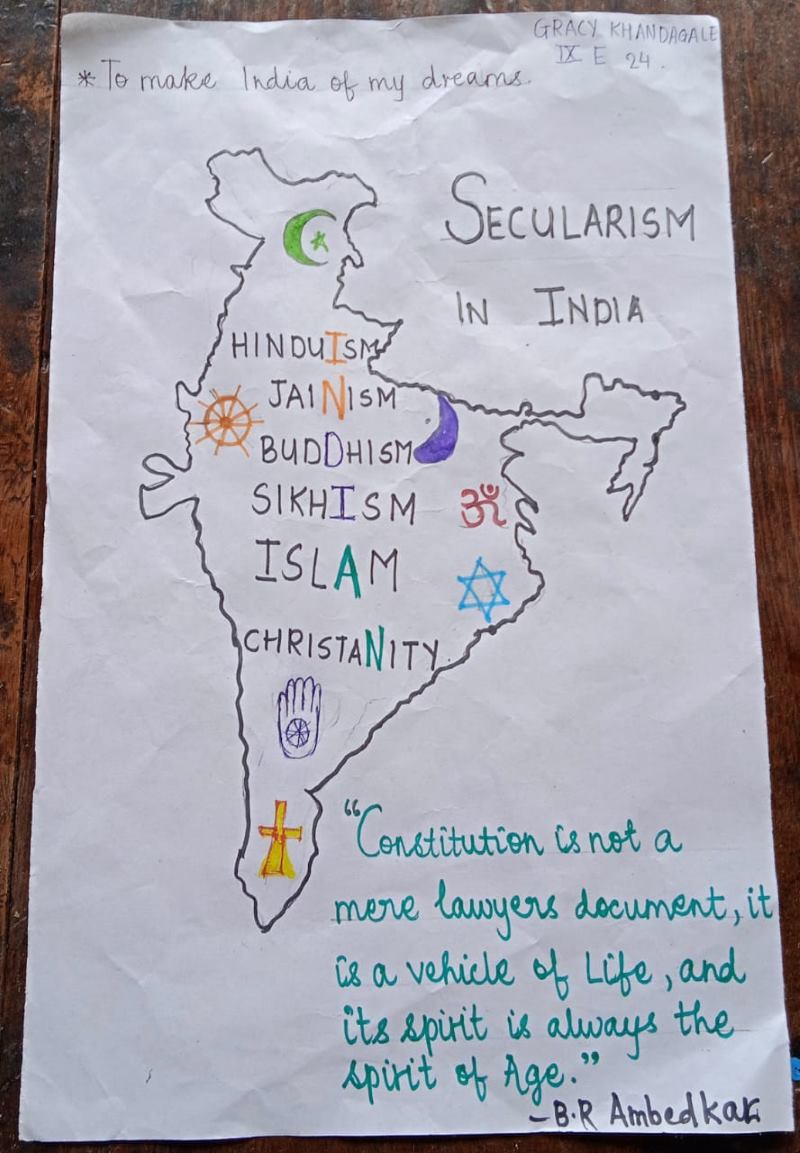 GRACY KHANDAGALE
IX E 24.
* To make India of my dreams.
SECULARISM
IN INDIA
HINDUISM
JAINISM
BUDDHISM
SIKHISM
ॐ
ISLAM
CHRISTANITY
“Constitution is not a
mere lawyers document, it
is a vehicle of Life, and
its spirit is always the
spirit of Age.”
-B.R Ambedkar